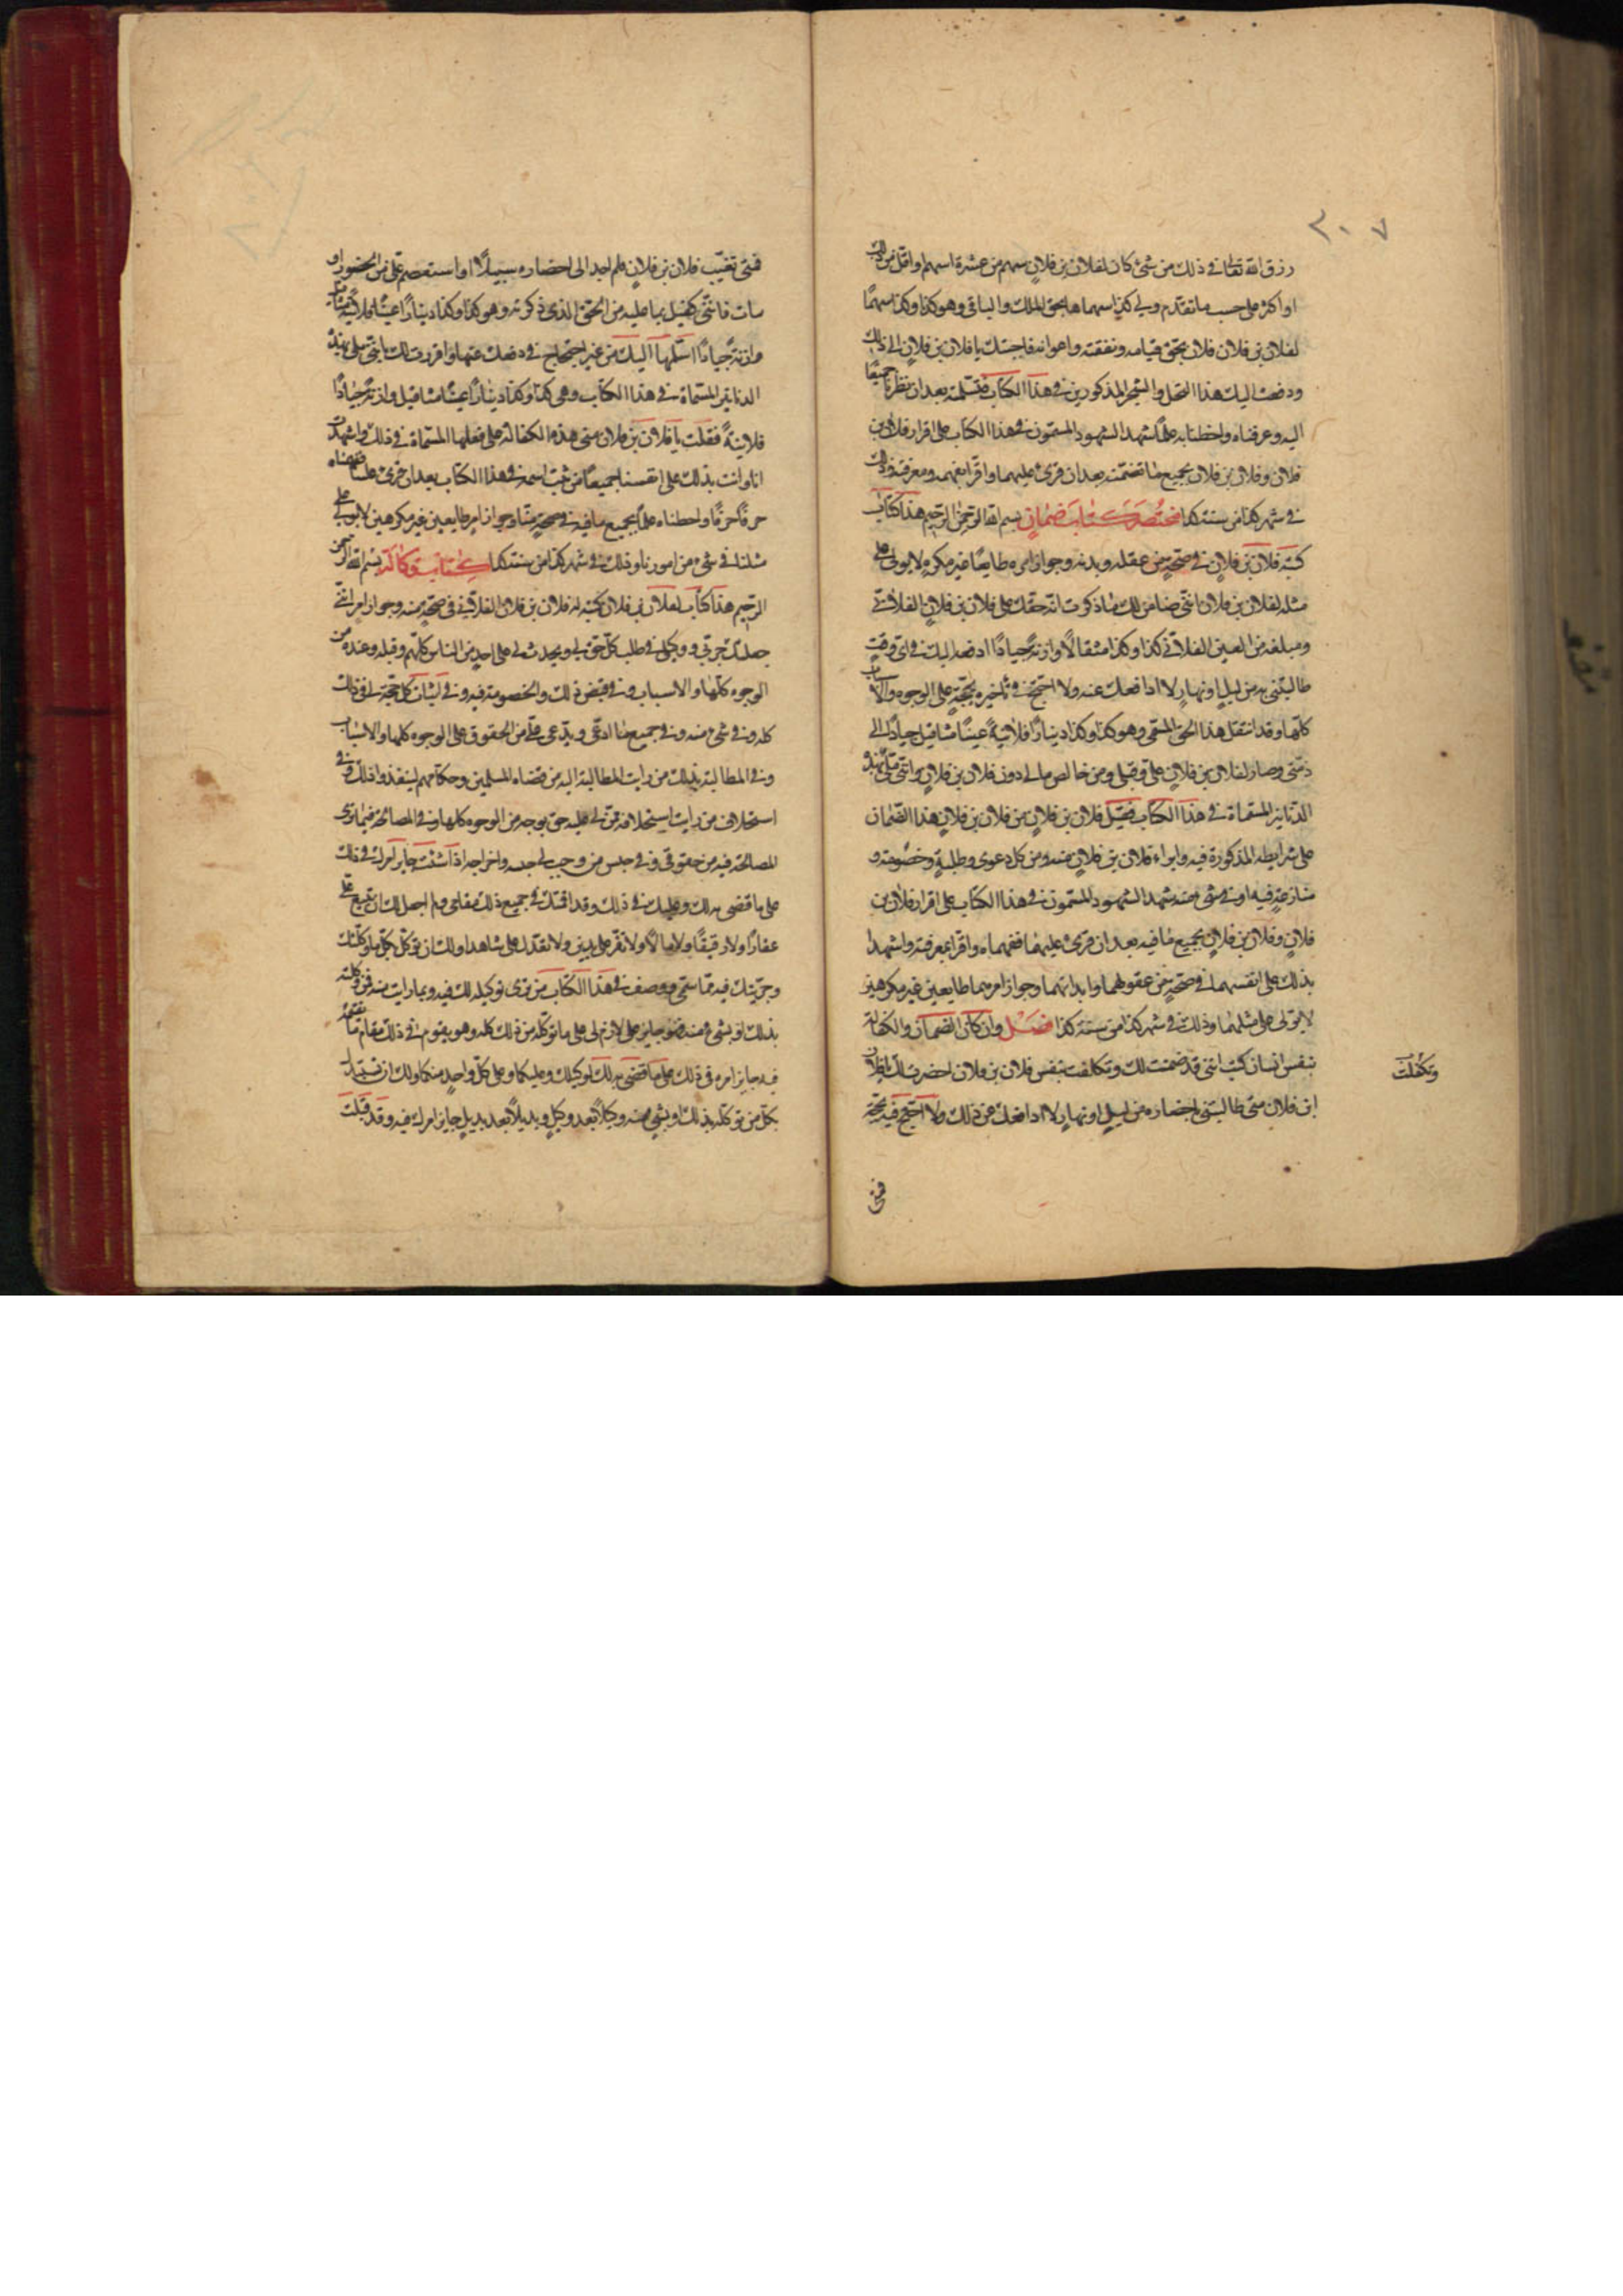 ٢٠٧
رزق الله تعالى في ذلك من شئ كان لفلان بن فلان سهم من عشرة اسهم او اقل من ذلك
او اكثر على حسب ما تقدم ولي كذا سهما بحق الملك والباقي وهو كذا وكذا سهمًا
لفلان بن فلان بحق قيامه ونفقته واعوانه فاجبتك يا فلان بن فلان الى ذلك
ودفعت اليك هذا النخل والشجر المذكورين في هذا الكتاب فتسلمته بعد ان نظرنا جميعًا
اليه وعرفناه واحطنا به علمًا شهد الشهود المسمون في هذا الكتاب على اقرار فلان بن
فلان وفلان بن فلان بجميع ما تضمنه بعد ان قرئ عليهما واقرا بفهمه ومعرفته وذلك
في شهر كذا من سنة كذا مختصر كتاب ضمان بسم الله الرحمن الرحيم هذا كتاب
كتبه فلان بن فلان في صحة من عقله وبدنه وجواز امره طايعًا غير مكره لا يولى على
مثله لفلان بن فلان انني ضامن لك ما ذكرت انه حقك على فلان بن فلان الفلاني
ومبلغه من العين الفلاني كذا وكذا مثقالًا وازنة جيادًا ادفعه اليك في اي وقت
طالبتني به من ليل او نهار لا ادافعك عنه ولا احتج في تأخيره بحجة على الوجوه والاسباب
كلها وقد انتقل هذا الحق المسمى وهو كذا وكذا دينارًا فلانية عينًا مثاقيل جيادًا الى
ذمتي وصار لفلان بن فلان علي وقبلي ومن خالص مالي دون فلان بن فلان وانني ملي بهذه
الدنانير المسماة في هذا الكتاب فقبل فلان بن فلان من فلان بن فلان هذا الضمان
على شرايطه المذكورة فيه وابراء فلان بن فلان منه ومن كل دعوى وطلبة وخصومة و
منازعة فيه او في شئ منه شهد الشهود المسمون في هذا الكتاب على اقرار فلان بن
فلان وفلان بن فلان بجميع ما فيه بعد ان قرئ عليهما ففهماه واقرا بمعرفته واشهدا
بذلك على انفسهما في صحة من عقولهما وابدانهما وجواز امرهما طايعين غير مكرهين
لا يولى على مثلهما وذلك في شهر كذا من سنة كذا فصل وان كان الضمان والكفالة
بنفس انسان كتب انني قد ضمنت لك وتكلفت بنفس فلان بن فلان احضره لك يا فلان
ابن فلان متى طالبتني باحضاره من ليل او نهار لا ادافعك عن ذلك ولا احتج فيه بحجة
وتكفلت
فمتى
فمتى تغيب فلان بن فلان ولم اجد الى احضاره سبيلًا او استعصم علي من الحضور او
مات فانني كفيل بما عليه من الحق الذي ذكرته وهو كذا وكذا دينارًا عينًا فلانية مثاقيل
وازنة جيادًا اسلمها اليك من غير احتجاج في دفعك عنها واقررت لك بانني ملي بهذه
الدنانير المسماة في هذا الكتاب وهي كذا وكذا دينارًا عينًا مثاقيل وازنة جيادًا
فلانية فقبلت يا فلان بن فلان مني هذه الكفالة على فعلها المسماة في ذلك واشهدت
انا وانت بذلك على انفسنا جميعًا من ثبت اسمه في هذا الكتاب بعد ان قرئ علينا ففهمناه
حرفًا حرفًا واحطناه علمًا بجميع ما فيه في صحة منا وجواز امر طايعين غير مكرهين لا يولى على
مثلنا في شئ من امورنا وذلك في شهر كذا من سنة كذا كتاب وكالة بسم الله الرحمن
الرحيم هذا كتاب لفلان بن فلان كتبه له فلان بن فلان الفلاني في صحة منه وجواز امر انني
جعلتك جريي ووكيلي في طلب كل حق لي ويحدث لي على احد من الناس كلهم وقبله وعنده من
الوجوه كلها والاسباب وفي قبض ذلك والخصومة فيه وفي اثبات كل حجة لي في ذلك
كله وفي شئ منه وفي جميع ما ادعي ويدعى علي من الحقوق على الوجوه كلها والاسباب
وفي المطالبة بذلك من رايت المطالبة اليه من قضاة المسلمين وحكامهم لينفذوا ذلك وفي
استحلاف من رايت استحلافه ممن لي عليه حق بوجه من الوجوه كلها وفي المصالحة فيما ترى
المصالحة فيه من حقوقي وفي حبس من وجب لي حبسه واخراجه اذا شئت جايز امرك في ذلك
على ما قضي به لك وعليك في ذلك وقد اقمتك في جميع ذلك مقامي ولم اجعل لك ان تبيع علي
عقارًا ولا رقيقًا ولا مالًا ولا تقر علي بدين ولا تعدل علي شاهدا ولك ان توكل بكل ما وكلتك
وجريتك فيه مما سمي ووصف في هذا الكتاب من ترى توكيله لك فيه وبما رايت منه فمن وكلته
بذلك او بشئ منه فهو جايز علي لازم لي على ما توكله من ذلك كله وهو يقوم في ذلك مقام ما تقيمه
فيه جايز امره في ذلك على ما قضي به لك لوكيلك وعليكما وعلى كل واحد منكما ولك ان تستبدل
بكل من توكله بذلك او بشئ منه وكيلًا بعد وكيل وبديلًا بعد بديل جايز امرك فيه وقد قبلت